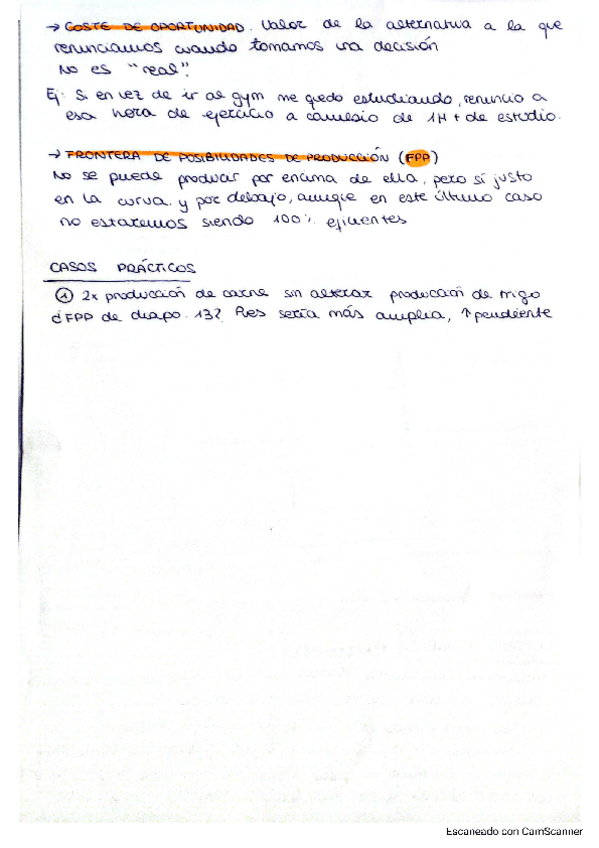 → COSTE DE OPORTUNIDAD. Valor de la alternativa a la que
renunciamos cuando tomamos una decisión
No es "real".
Ej: Si en vez de ir al gym me quedo estudiando, renuncio a
esa hora de ejercicio a cambio de 1H + de estudio.
→ FRONTERA DE POSIBILIDADES DE PRODUCCIÓN (FPP)
No se puede producir por encima de ella, pero sí justo
en la curva y por debajo, aunque en este último caso
no estaremos siendo 100% eficientes
CASOS PRÁCTICOS
① 2x producción de carne sin alterar producción de trigo
¿FPP de diapo. 13? Pues sería más amplia, ↑ pendiente
Escaneado con CamScanner